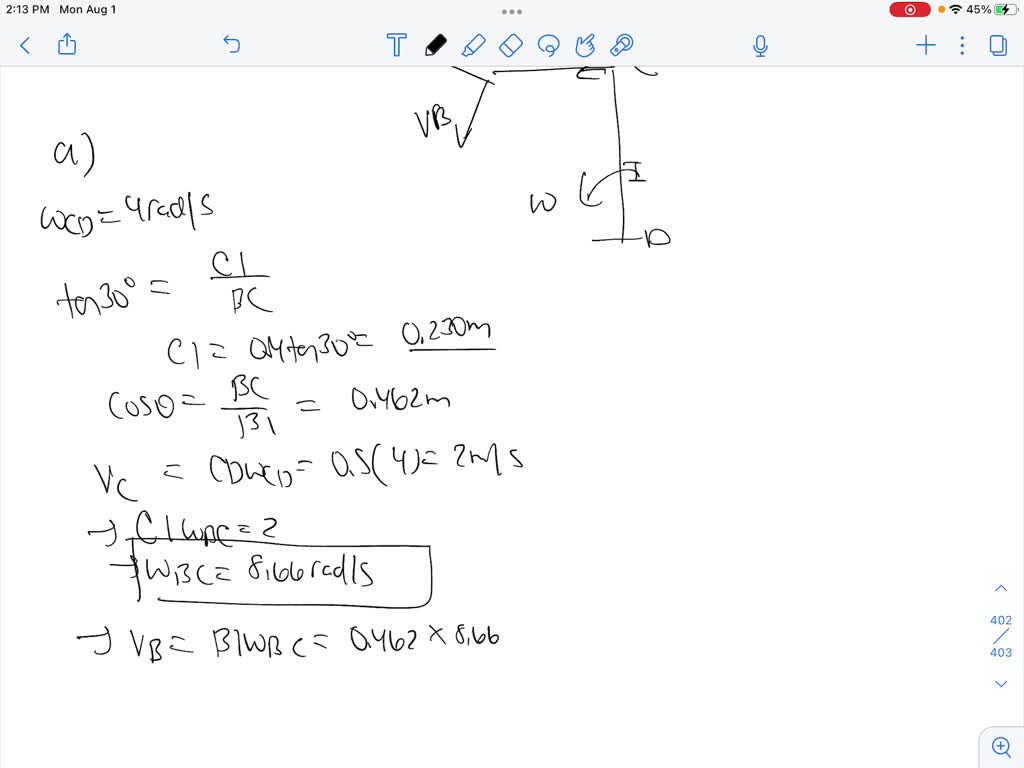 2:13 PM Mon Aug 1
45%
T
C
VB
I
W
D
a)
ωCD = 4rad/s
tan30° = CI / BC
CI = 0.4tan30° = 0.230m
Cosθ = BC / BI = 0.462m
VC = CDWCD = 0.5(4) = 2m/s
→ CIWBC = 2
→ WBC = 8.66rad/s
→ VB = BIWBC = 0.462 × 8.66
402
/
403